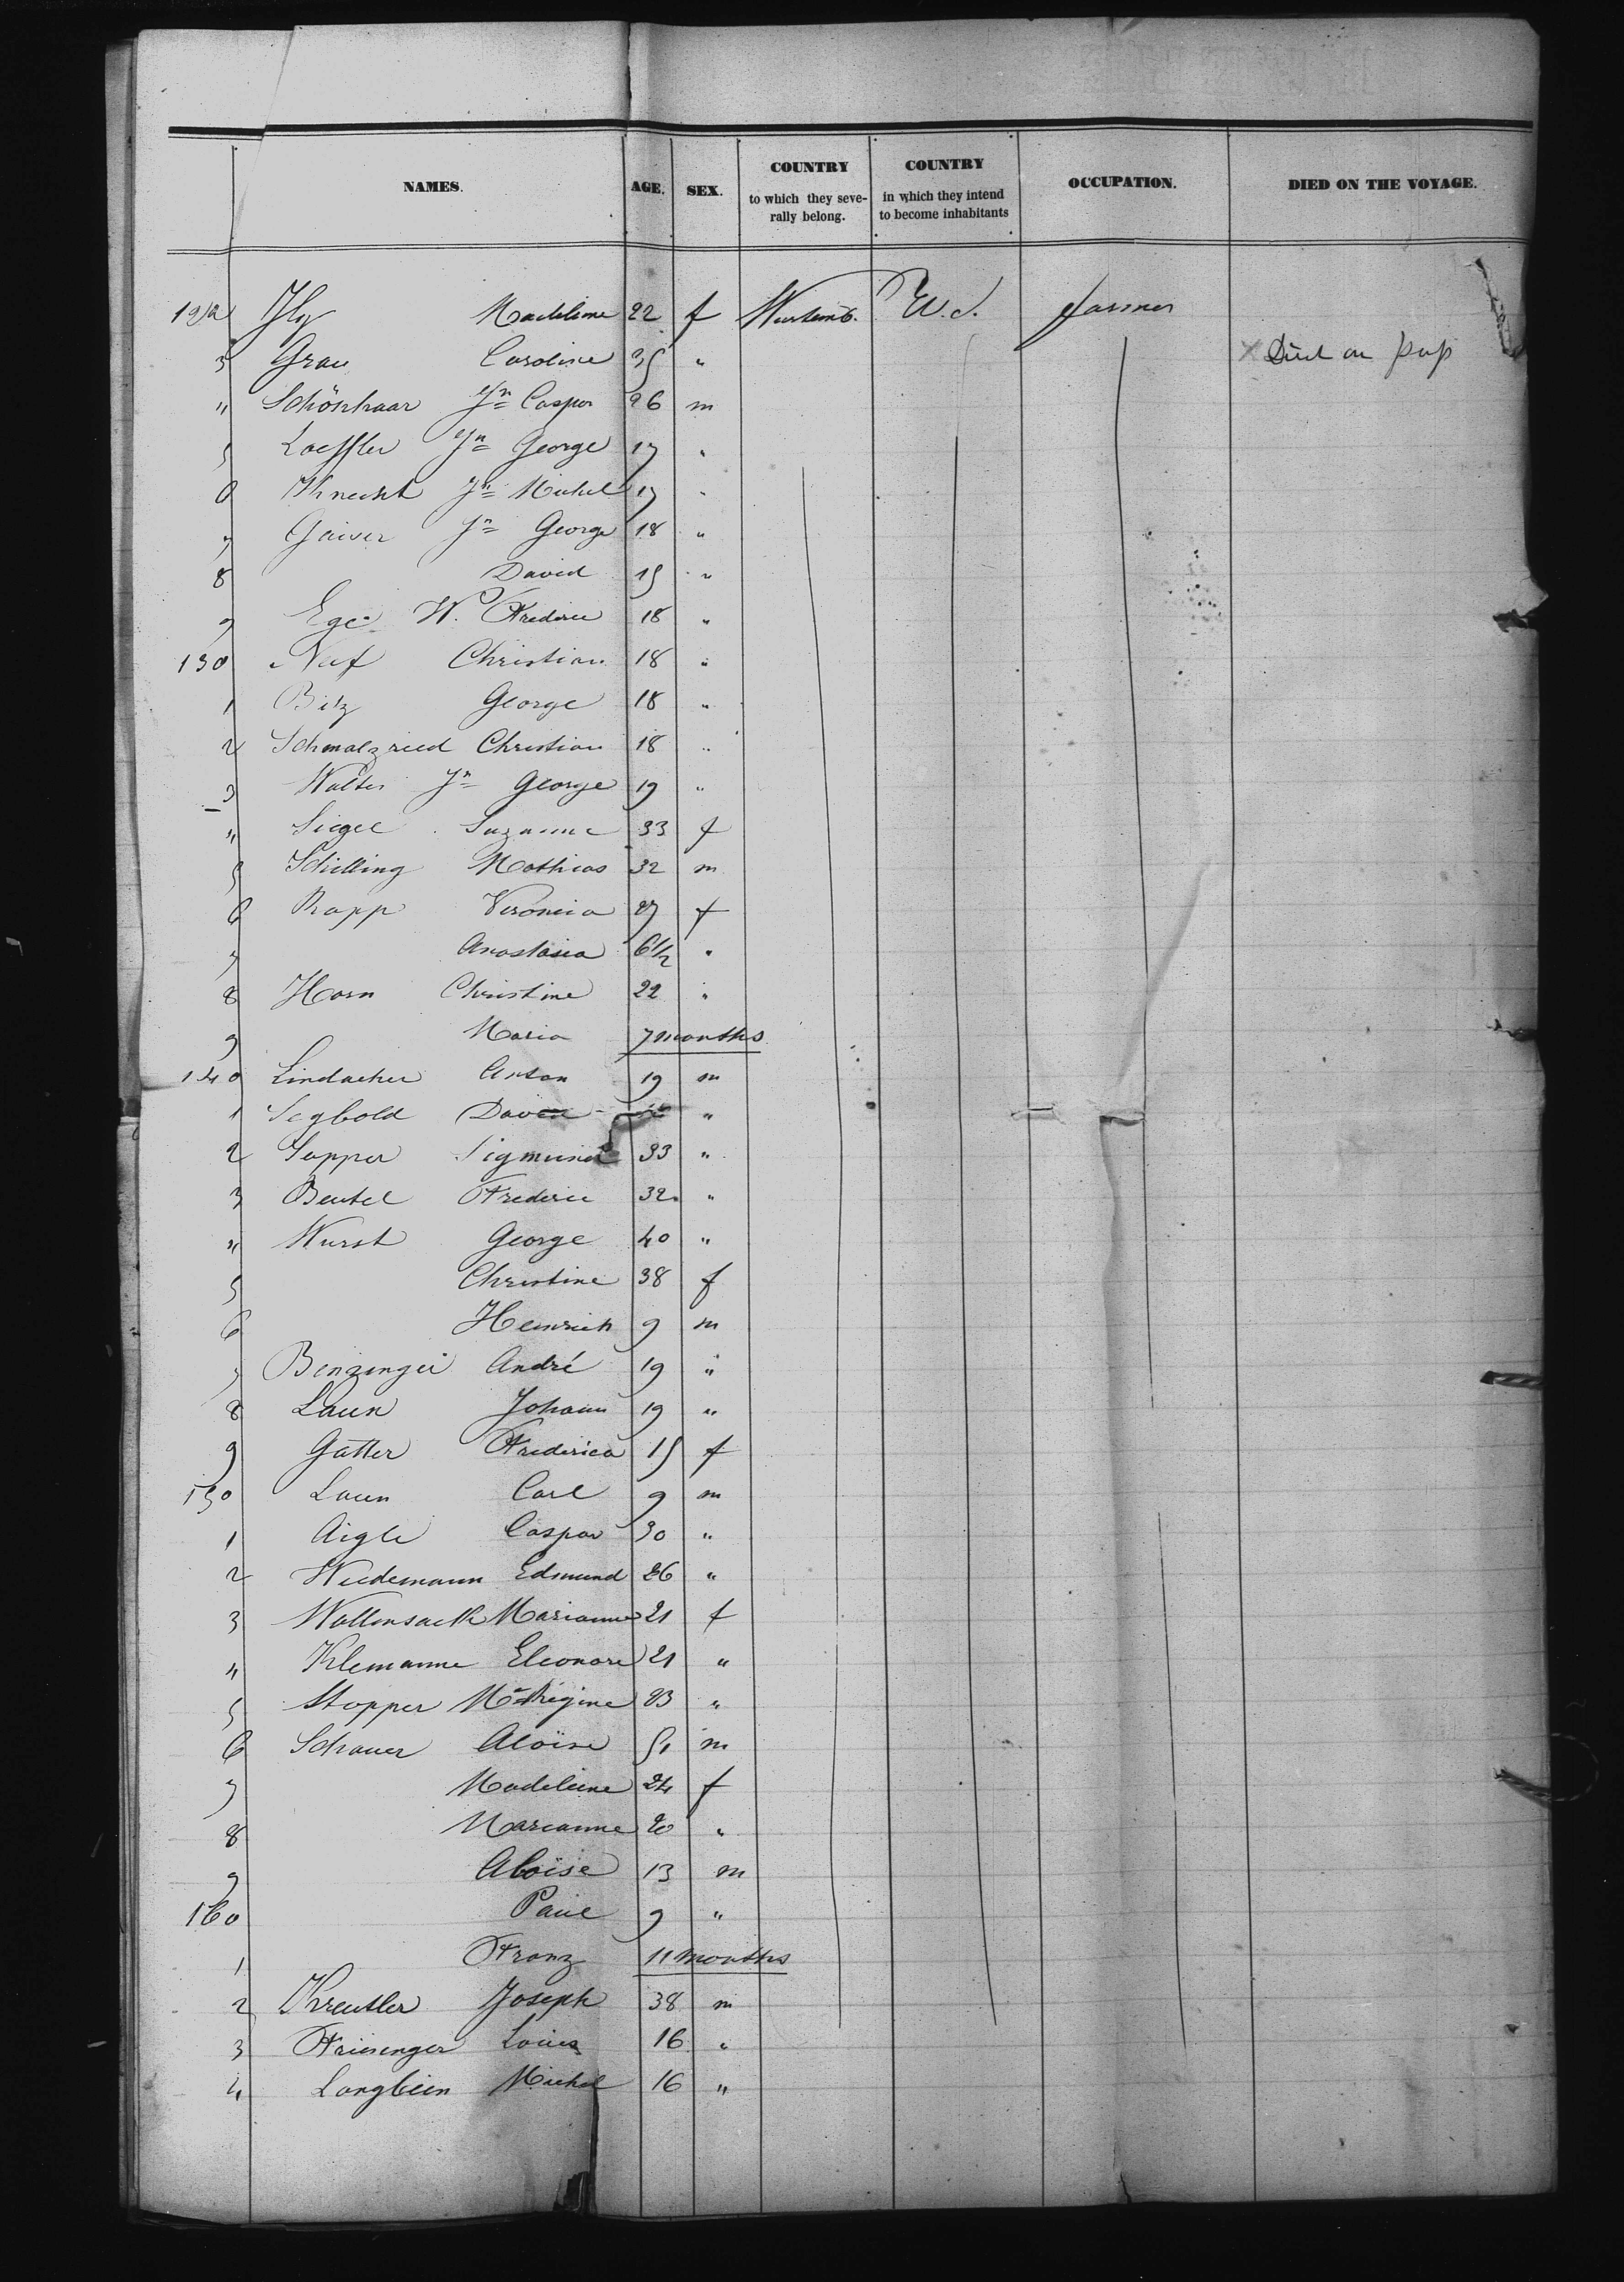 NAMES. AGE. SEX. COUNTRY to which they seve- rally belong. COUNTRY in which they intend to become inhabitants OCCUPATION. DIED ON THE VOYAGE.
122 Madeleine 22 f Wurtemb. U.S. farmer
3 Grau Caroline 35 " Died on
4 Schönhaar Jn Caspar 26 m
5 Loeffler Jn George 17 "
6 Knecht Jn Michel 17 "
7 Gaiser Jn George 18 "
8 David 15 "
9 Ege W. Frederic 18 "
130 Neef Christian 18 "
1 Bitz George 18 "
2 Schmalzried Christian 18 "
3 Walter Jn George 19 "
4 Siegel Suzanne 33 f
5 Schilling Mathias 32 m
6 Rapp Veronica 27 f
7 Anastasia 6 1/2 "
8 Horn Christine 22 "
9 Maria 7 months
140 Lindacher Anton 19 m
1 Segbold David "
2 Sapper Sigmund 33 "
3 Beutel Frederic 32 "
4 Wurst George 40 "
5 Christine 38 f
6 Heinrich 9 m
7 Benzinger André 19 "
8 Laun Johann 19 "
9 Gatter Frederica 15 f
150 Laun Carl 9 m
1 Aigle Caspar 30 "
2 Wiedemann Edmund 26 "
3 Wollensack Marianne 21 f
4 Klemanne Eleonore 21 "
5 Stopper Ma Regine 23 "
6 Schauer Aloïse 51 m
7 Madeleine 24 f
8 Marianne 20 "
9 Aloïse 13 m
160 Paul 9 "
1 Franz 11 months
2 Kreutler Joseph 38 m
3 Friesenger Louis 16 "
4 Langbein Michel 16 "